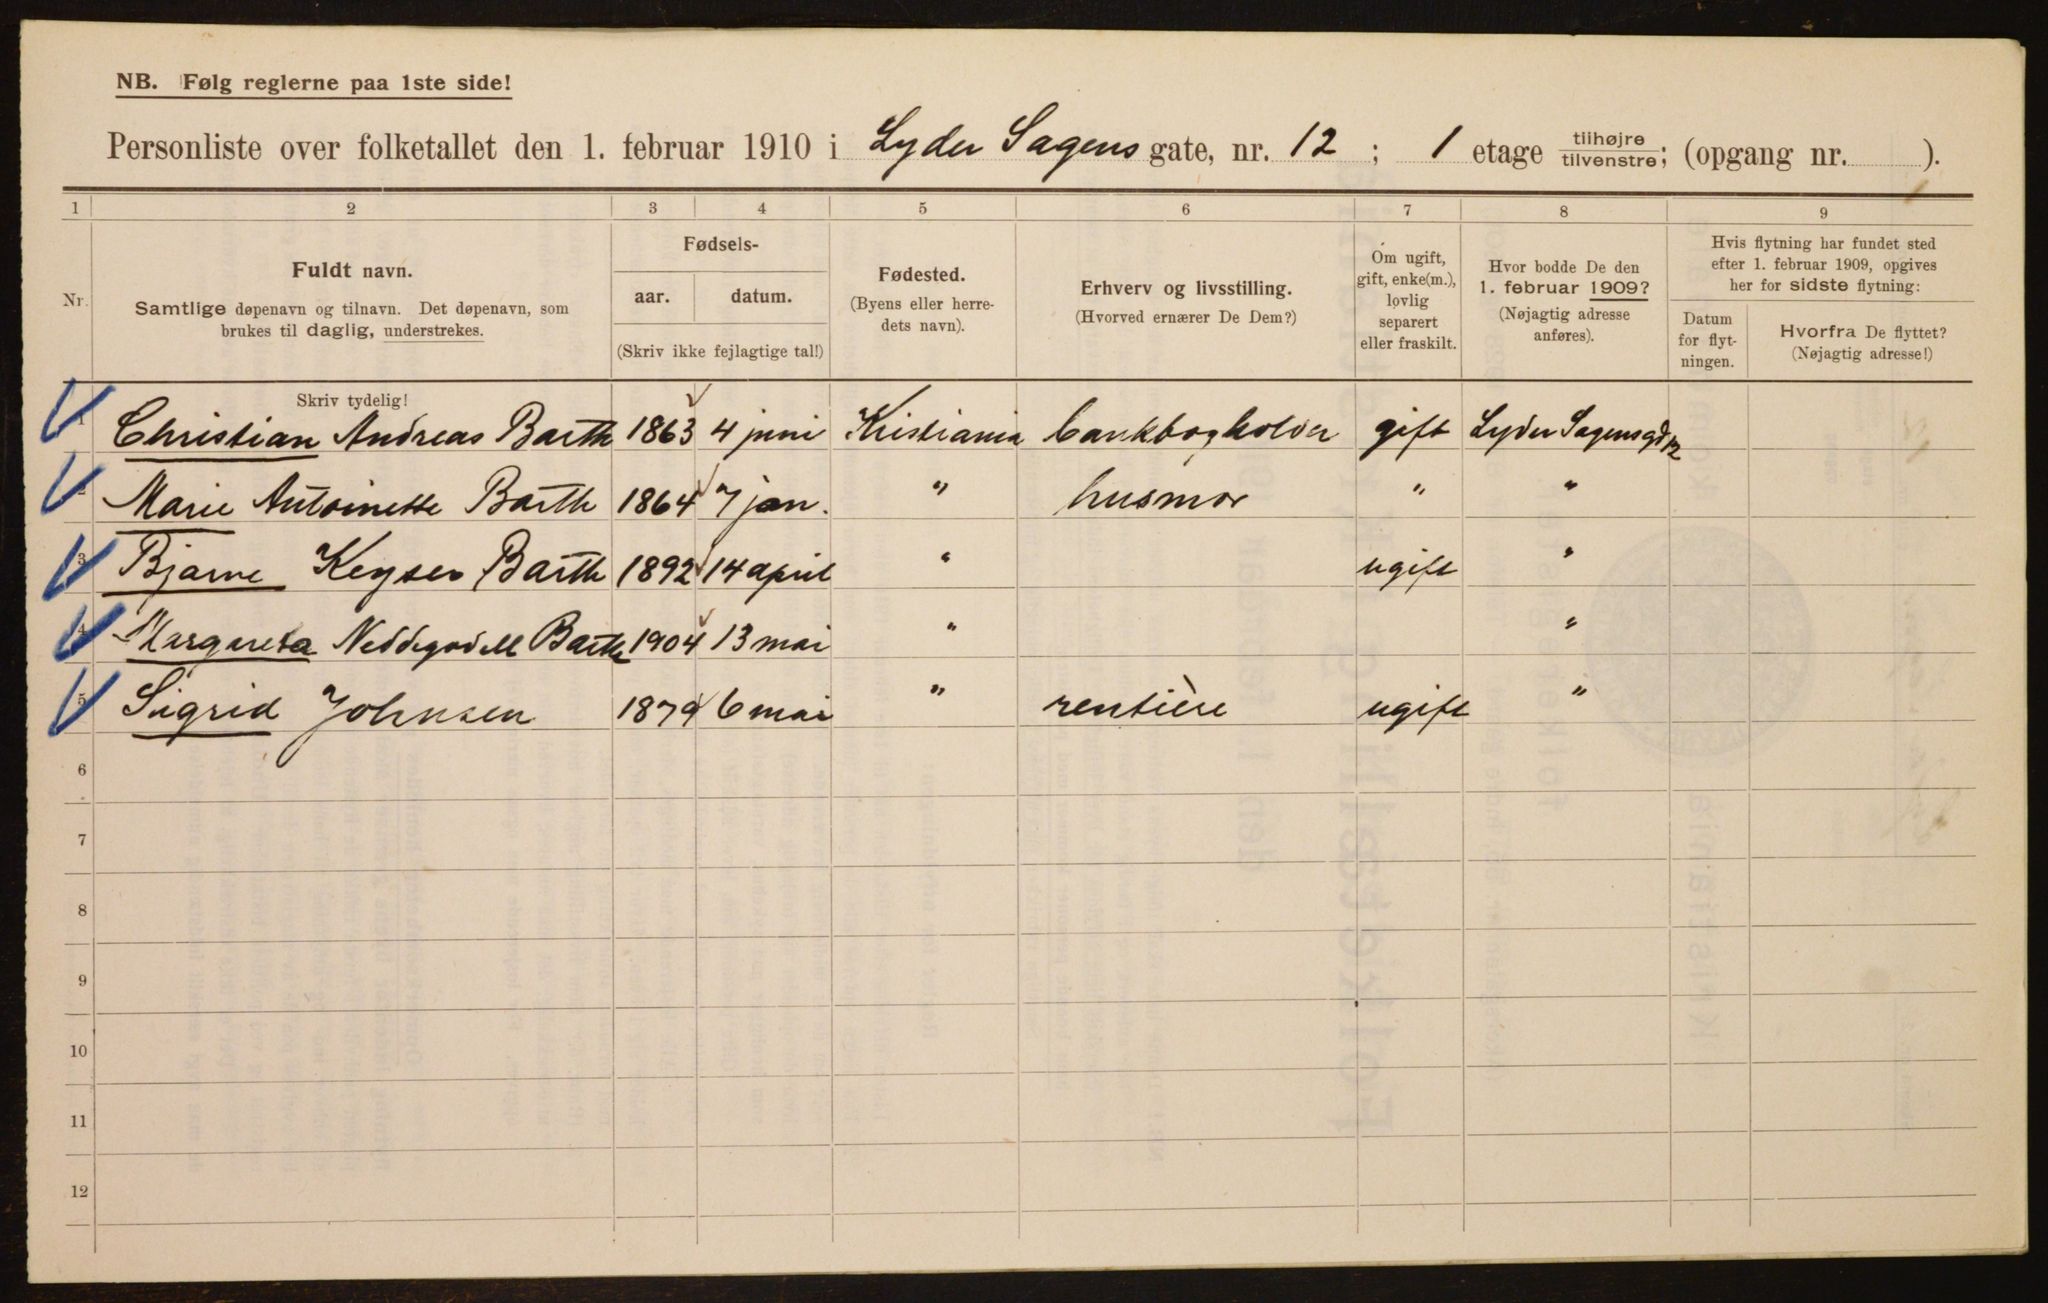 NB. Følg reglerne paa 1ste side!
Personliste over folketallet den 1. februar 1910 i Lyder Sagens gate, nr. 12 ; 1 etage tilhøjre/tilvenstre; (opgang nr. ).
1 2 3 4 5 6 7 8 9
Nr.
Fuldt navn.
Samtlige døpenavn og tilnavn. Det døpenavn, som
brukes til daglig, understrekes.
Fødsels-
aar. datum.
(Skriv ikke fejlagtige tal!)
Fødested.
(Byens eller herre-
dets navn).
Erhverv og livsstilling.
(Hvorved ernærer De Dem?)
Om ugift,
gift, enke(m.),
lovlig
separert
eller fraskilt.
Hvor bodde De den
1. februar 1909?
(Nøjagtig adresse
anføres).
Hvis flytning har fundet sted
efter 1. februar 1909, opgives
her for sidste flytning:
Datum
for flyt-
ningen.
Hvorfra De flyttet?
(Nøjagtig adresse!)
Skriv tydelig!
1 Christian Andreas Barth 1863 4 juni Kristiania bankbogholder gift Lyder Sagensgd 12
2 Marie Antoinette Barth 1864 7 jan. " husmor " "
3 Bjarne Keyser Barth 1892 14 april " ugift "
4 Margareta Barth 1904 13 mai " "
5 Sigrid Johnsen 1879 6 mai " rentière ugift "
6
7
8
9
10
11
12